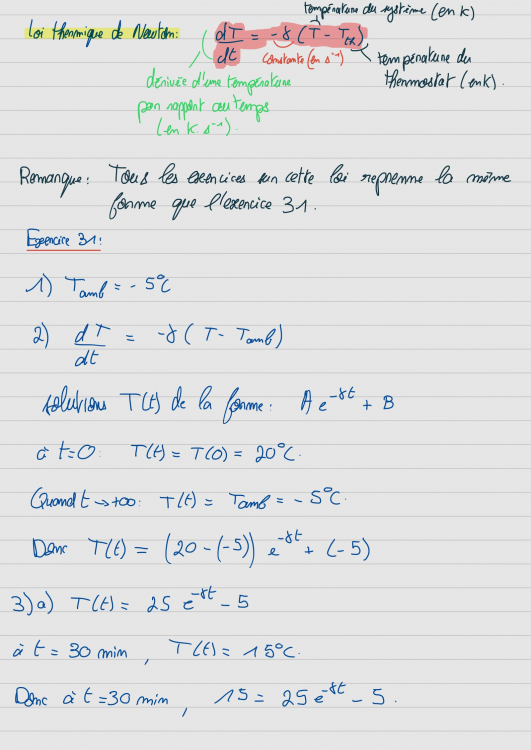 température du système (en K)
Loi thermique de Newton: dT/dt = -γ (T - Tth)
constante (en s⁻¹)
température du
thermostat (en K).
dérivée d'une température
par rapport au temps
(en K.s⁻¹).
Remarque: Tous les exercices sur cette loi reprenne la même
forme que l'exercice 31.
Exercice 31:
1) Tamb = -5°C
2) dT/dt = -γ (T - Tamb)
solutions T(t) de la forme: A e^-γt + B
à t=0: T(t) = T(0) = 20°C.
Quand t → +∞: T(t) = Tamb = -5°C.
Donc T(t) = (20-(-5)) e^-γt + (-5)
3)a) T(t) = 25 e^-γt - 5
à t = 30 min, T(t) = 15°C.
Donc à t=30 min, 15 = 25e^-γt - 5.